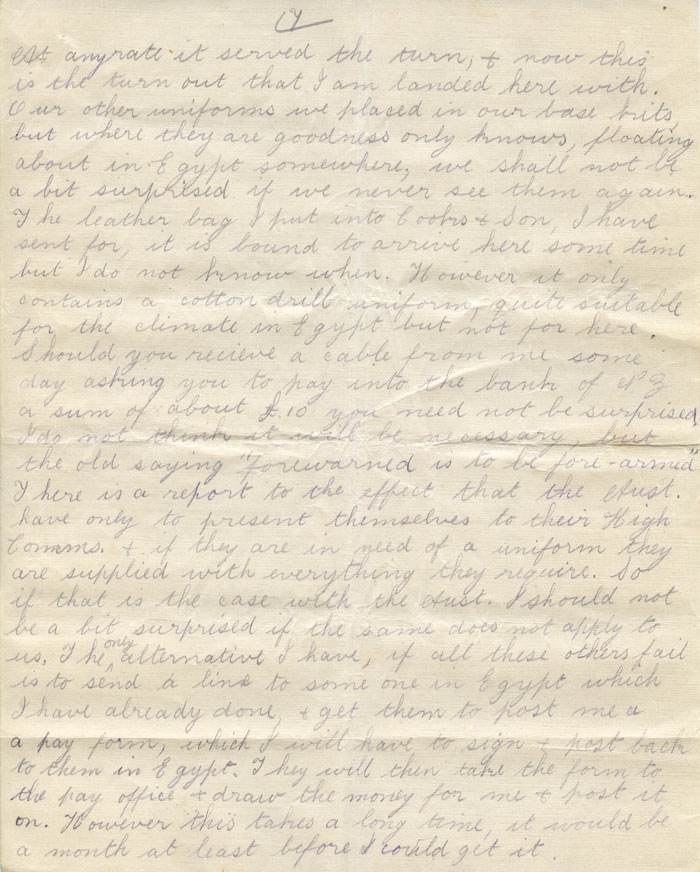 (7
At anyrate it served the turn, & now this
is the turn out that I am landed here with.
Our other uniforms we placed in our base kits,
but where they are goodness only knows, floating
about in Egypt somewhere, we shall not be
a bit surprised if we never see them again.
The leather bag I put into Cooks & Son, I have
sent for, it is bound to arrive here some time
but I do not know when. However it only
contains a cotton drill uniform, quite suitable
for the climate in Egypt but not for here.
Should you recieve a cable from me some
day asking you to pay into the bank of N Z
a sum of about £10 you need not be surprised
I do not think it will be necessary, but
the old saying "forewarned is to be fore-armed"
There is a report to the effect that the Aust.
have only to present themselves to their High
Comms. & if they are in need of a uniform they
are supplied with everything they require. So
if that is the case with the Aust. I should not
be a bit surprised if the same does not apply to
us. The only alternative I have, if all these others fail
is to send a line to some one in Egypt which
I have already done, & get them to post me a
a pay form, which I will have to sign & post back
to them in Egypt. They will then take the form to
the pay office & draw the money for me & post it
on. However this takes a long time, it would be
a month at least before I could get it.